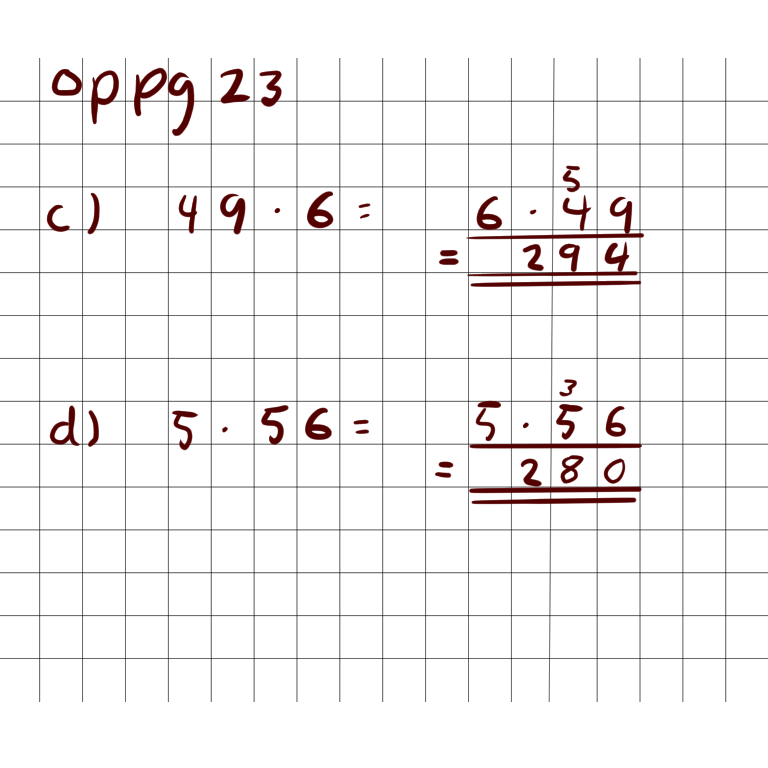 oppg 23
5
c) 49 · 6 = 6 · 49
= 294
3
d) 5 · 56 = 5 · 56
= 280